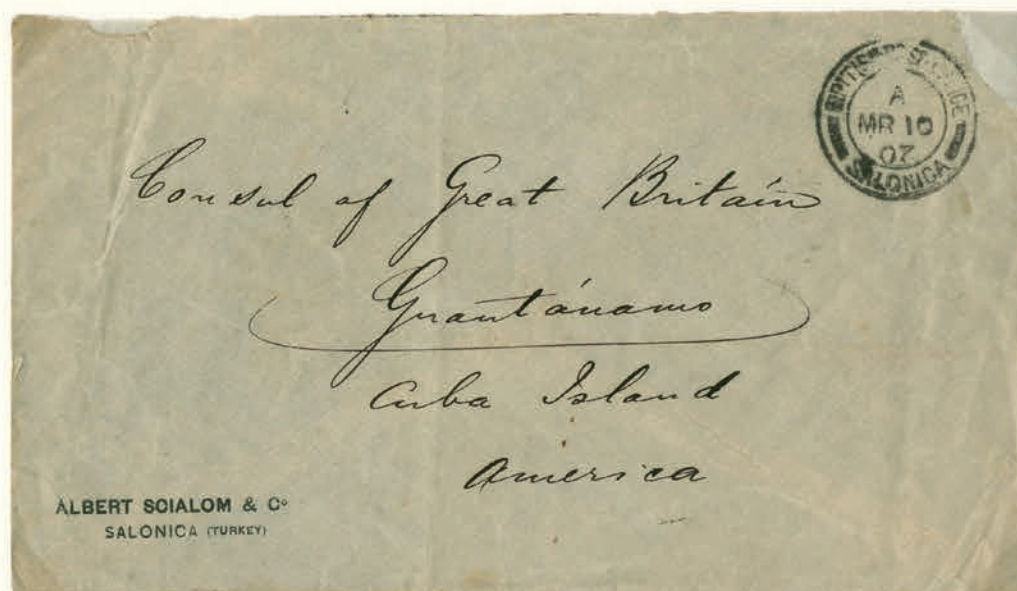 BRITISH POST OFFICE
A
MR 10
07
SALONICA
Consul of Great Britain
Guantánamo
Cuba Island
America
ALBERT SCIALOM & Cº
SALONICA (TURKEY)